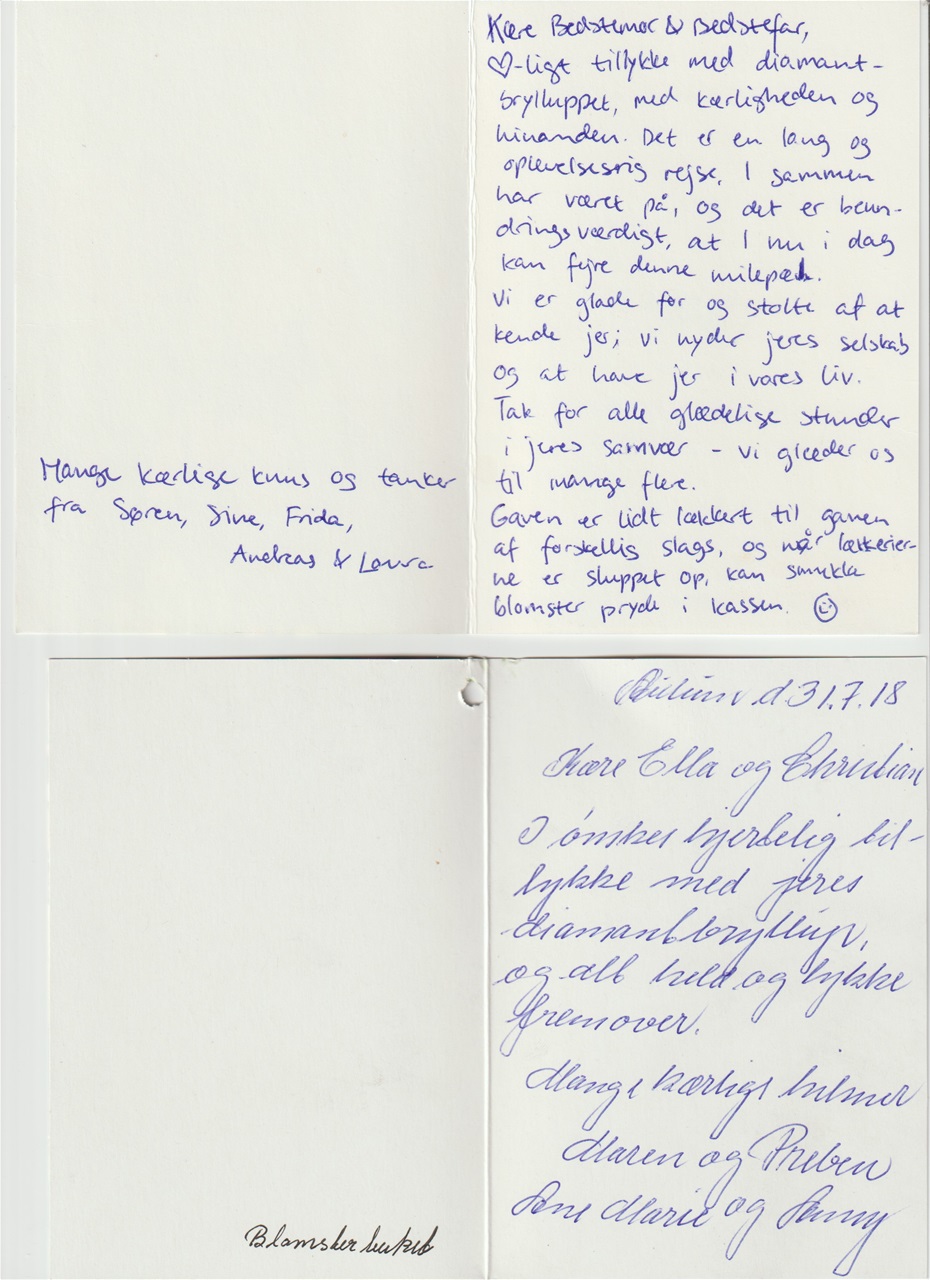 Kære Bedstemor & Bedstefar,
♡-ligt tillykke med diamant-
brylluppet, med kærligheden og
hinanden. Det er en lang og
oplevelsesrig rejse, I sammen
har været på, og det er beun-
dringsværdigt, at I nu i dag
kan fejre denne milepæl.
Vi er glade for og stolte af at
kende jer; vi nyder jeres selskab
og at have jer i vores liv.
Tak for alle glædelige stunder
i jeres samvær - vi glæder os
til mange flere.
Gaven er lidt lækkert til ganen
af forskellig slags, og når lækkerier-
ne er sluppet op, kan smukke
blomster pryde i kassen. ☺
Mange kærlige knus og tanker
fra Søren, Sine, Frida,
Andreas & Laura
d. 31.7.18
Kære Ella og Christian
I ønskes hjertelig til-
lykke med jeres
diamantbryllup,
og alt held og lykke
fremover.
Mange kærlige hilsner
Maren og Preben
Ane Marie og
Blomsterbuket